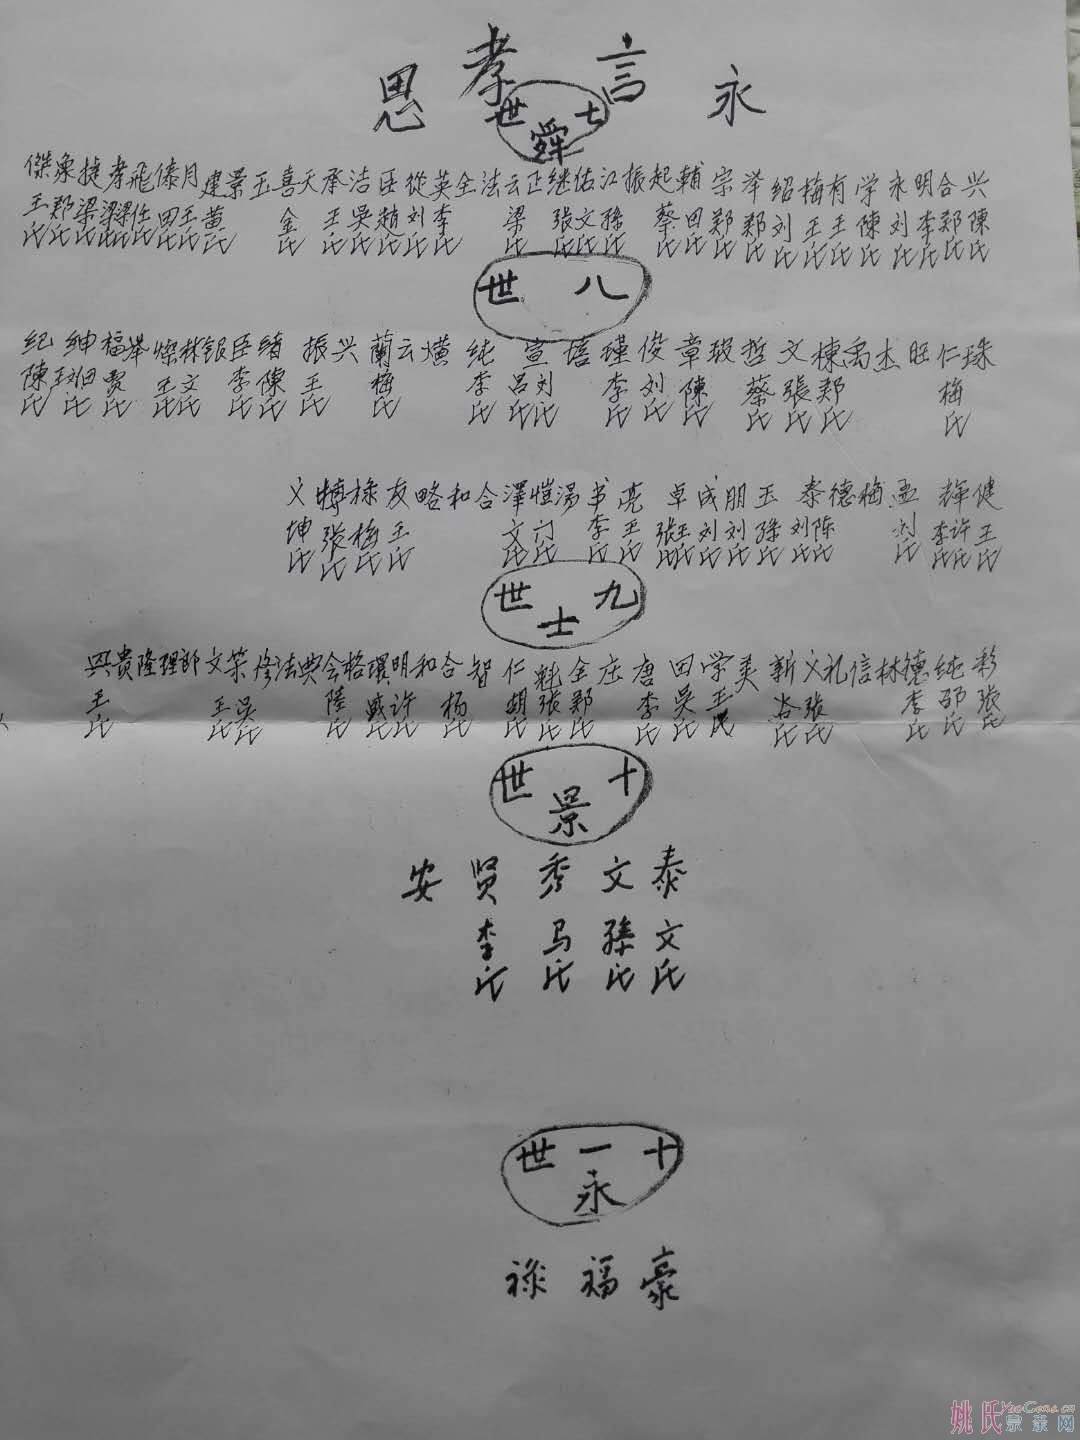 永言孝思
七世
舜
兴合明永学有梅绍举宗輔起振江佑继正云法全英從臣洁承天喜玉景建月傣飛孝捷象傑
陳氏 郑氏 李氏 刘氏 陳氏 王氏 王氏 刘氏 郑氏 郑氏 田氏 蔡氏 孫氏 文氏 张氏 梁氏 李氏 刘氏 趙氏 吳氏 王氏 金氏 黄氏 王氏 田氏 任氏 梁氏 梁氏 梁氏 郑氏 王氏
八世
珠仁旺杰禹棟文哲瑕章俊瑾信宣纯熿云蘭兴振绪臣银林燦举福绅纪
梅氏 郑氏 張氏 蔡氏 陳氏 刘氏 李氏 刘氏 吕氏 李氏 梅氏 王氏 陳氏 李氏 文氏 王氏 贾氏 田氏 陳氏
健辉孟梅德泰玉朋成卓亮书湯愷澤合和略友禄博义
王氏 许氏 李氏 刘氏 陈氏 刘氏 孫氏 刘氏 刘氏 王氏 张氏 王氏 李氏 门氏 文氏 王氏 梅氏 张氏 坤氏
九世
士
彩纯德林信礼义新爽学田唐庄金魁仁智合和明琪格会典法修荣文郎理隆贵兴
张氏 邵氏 李氏 张氏 谷氏 王氏 吴氏 李氏 郑氏 张氏 胡氏 杨氏 许氏 戚氏 陸氏 吴氏 王氏 王氏
十世
景
泰文秀贤安
文氏 孫氏 马氏 李氏
十一世
永
豪福禄
姚氏宗亲网
YaoGens.cn